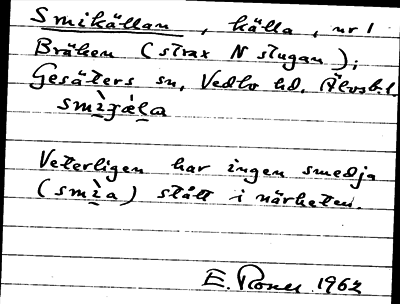 Smikällan, källa, nr 1
Bräken (strax N stugan);
Gesäters sn, Vedbo hd, Älvsb. l.
smìɡǽla
Veterligen har ingen smedja
(smìa) stått i närheten.
E. 1962